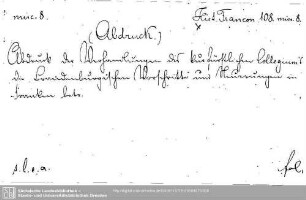 misc. 8.
Hist. Francon 108. misc. 8.
x
(Abdruck,)
Abdruck der Verhandlungen des kurfürstlichen Collegiums
die Brandenburgischen Vorschritte und Neuerungen in
Franken betr.
s. l. e. a.
fol.
Sächsische Landesbibliothek -
Staats- und Universitätsbibliothek Dresden